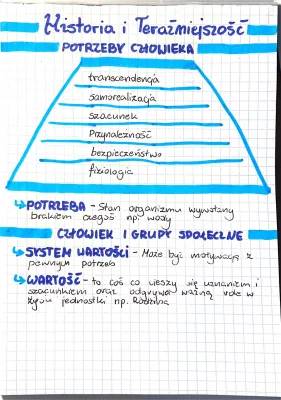 Historia i Teraźniejszość
POTRZEBY CZŁOWIEKA
transcendencja
samorealizacja
szacunek
Przynależność
bezpieczeństwo
fizjologia
↳POTRZEBA - Stan organizmu wywołany
brakiem czegoś np. wody
CZŁOWIEK I GRUPY SPOŁECZNE
↳SYSTEM WARTOŚCI - Może być motywacją z
pewnym potrzeb
↳WARTOŚĆ - to coś co cieszy się uznaniem i
szacunkiem oraz odgrywa ważną role w
życiu jednostki np. Rodzina